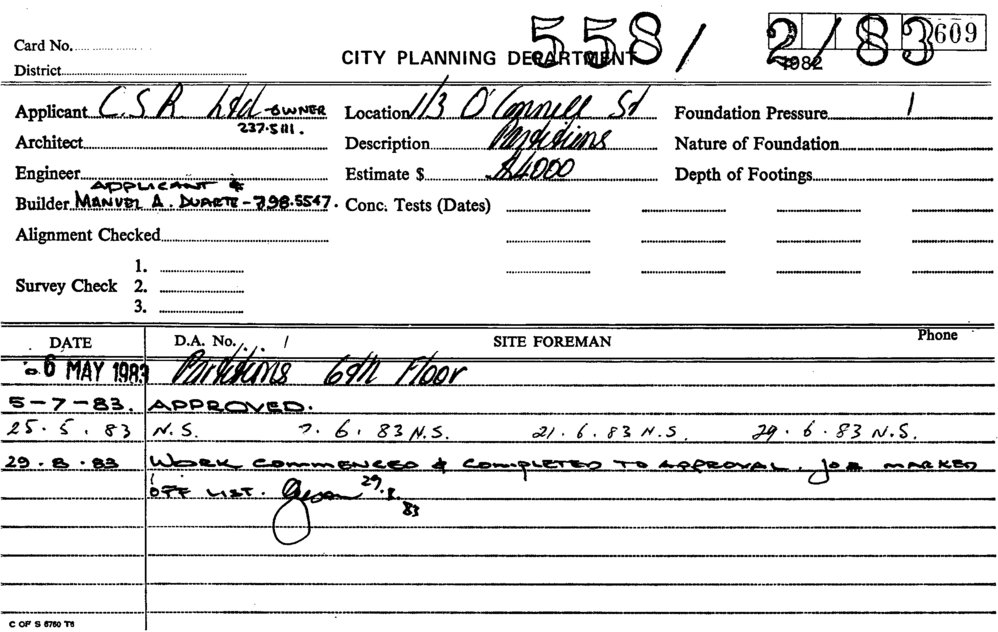 558/ 2/83 609
Card No.
CITY PLANNING DEPARTMENT
1982
District
Applicant C.S.R Ltd - OWNER Location 1/3 O'Connell St Foundation Pressure /
237.5111.
Architect Description Partitions Nature of Foundation
Engineer Estimate $ $4000 Depth of Footings
APPLICANT &
Builder MANUEL A. DUARTE - 798.5547. Conc. Tests (Dates)
Alignment Checked
1.
Survey Check 2.
3.
DATE D.A. No. / SITE FOREMAN Phone
-6 MAY 1983 Partitions 6th Floor
5-7-83. APPROVED.
25.5.83 N.S. 7.6.83 N.S. 21.6.83 N.S. 29.6.83 N.S.
29.8.83 WORK COMMENCED & COMPLETED TO APPROVAL. JOB MARKED
OFF LIST. 29.8.83
C OF S 6760 T6